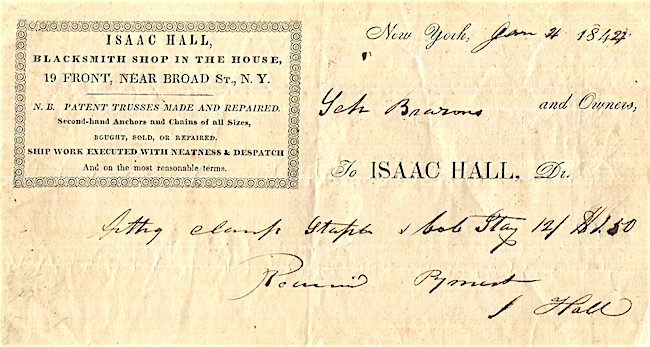 ISAAC HALL,
BLACKSMITH SHOP IN THE HOUSE,
19 FRONT, NEAR BROAD ST., N. Y.
N. B. PATENT TRUSSES MADE AND REPAIRED.
Second-hand Anchors and Chains of all Sizes,
BOUGHT, SOLD, OR REPAIRED.
SHIP WORK EXECUTED WITH NEATNESS & DESPATCH
And on the most reasonable terms.
New York, Jan 4 1844
Sch Brazons and Owners,
To ISAAC HALL, Dr.
clamp Staple & Stay 12/ $1.50
Received Payment
I Hall